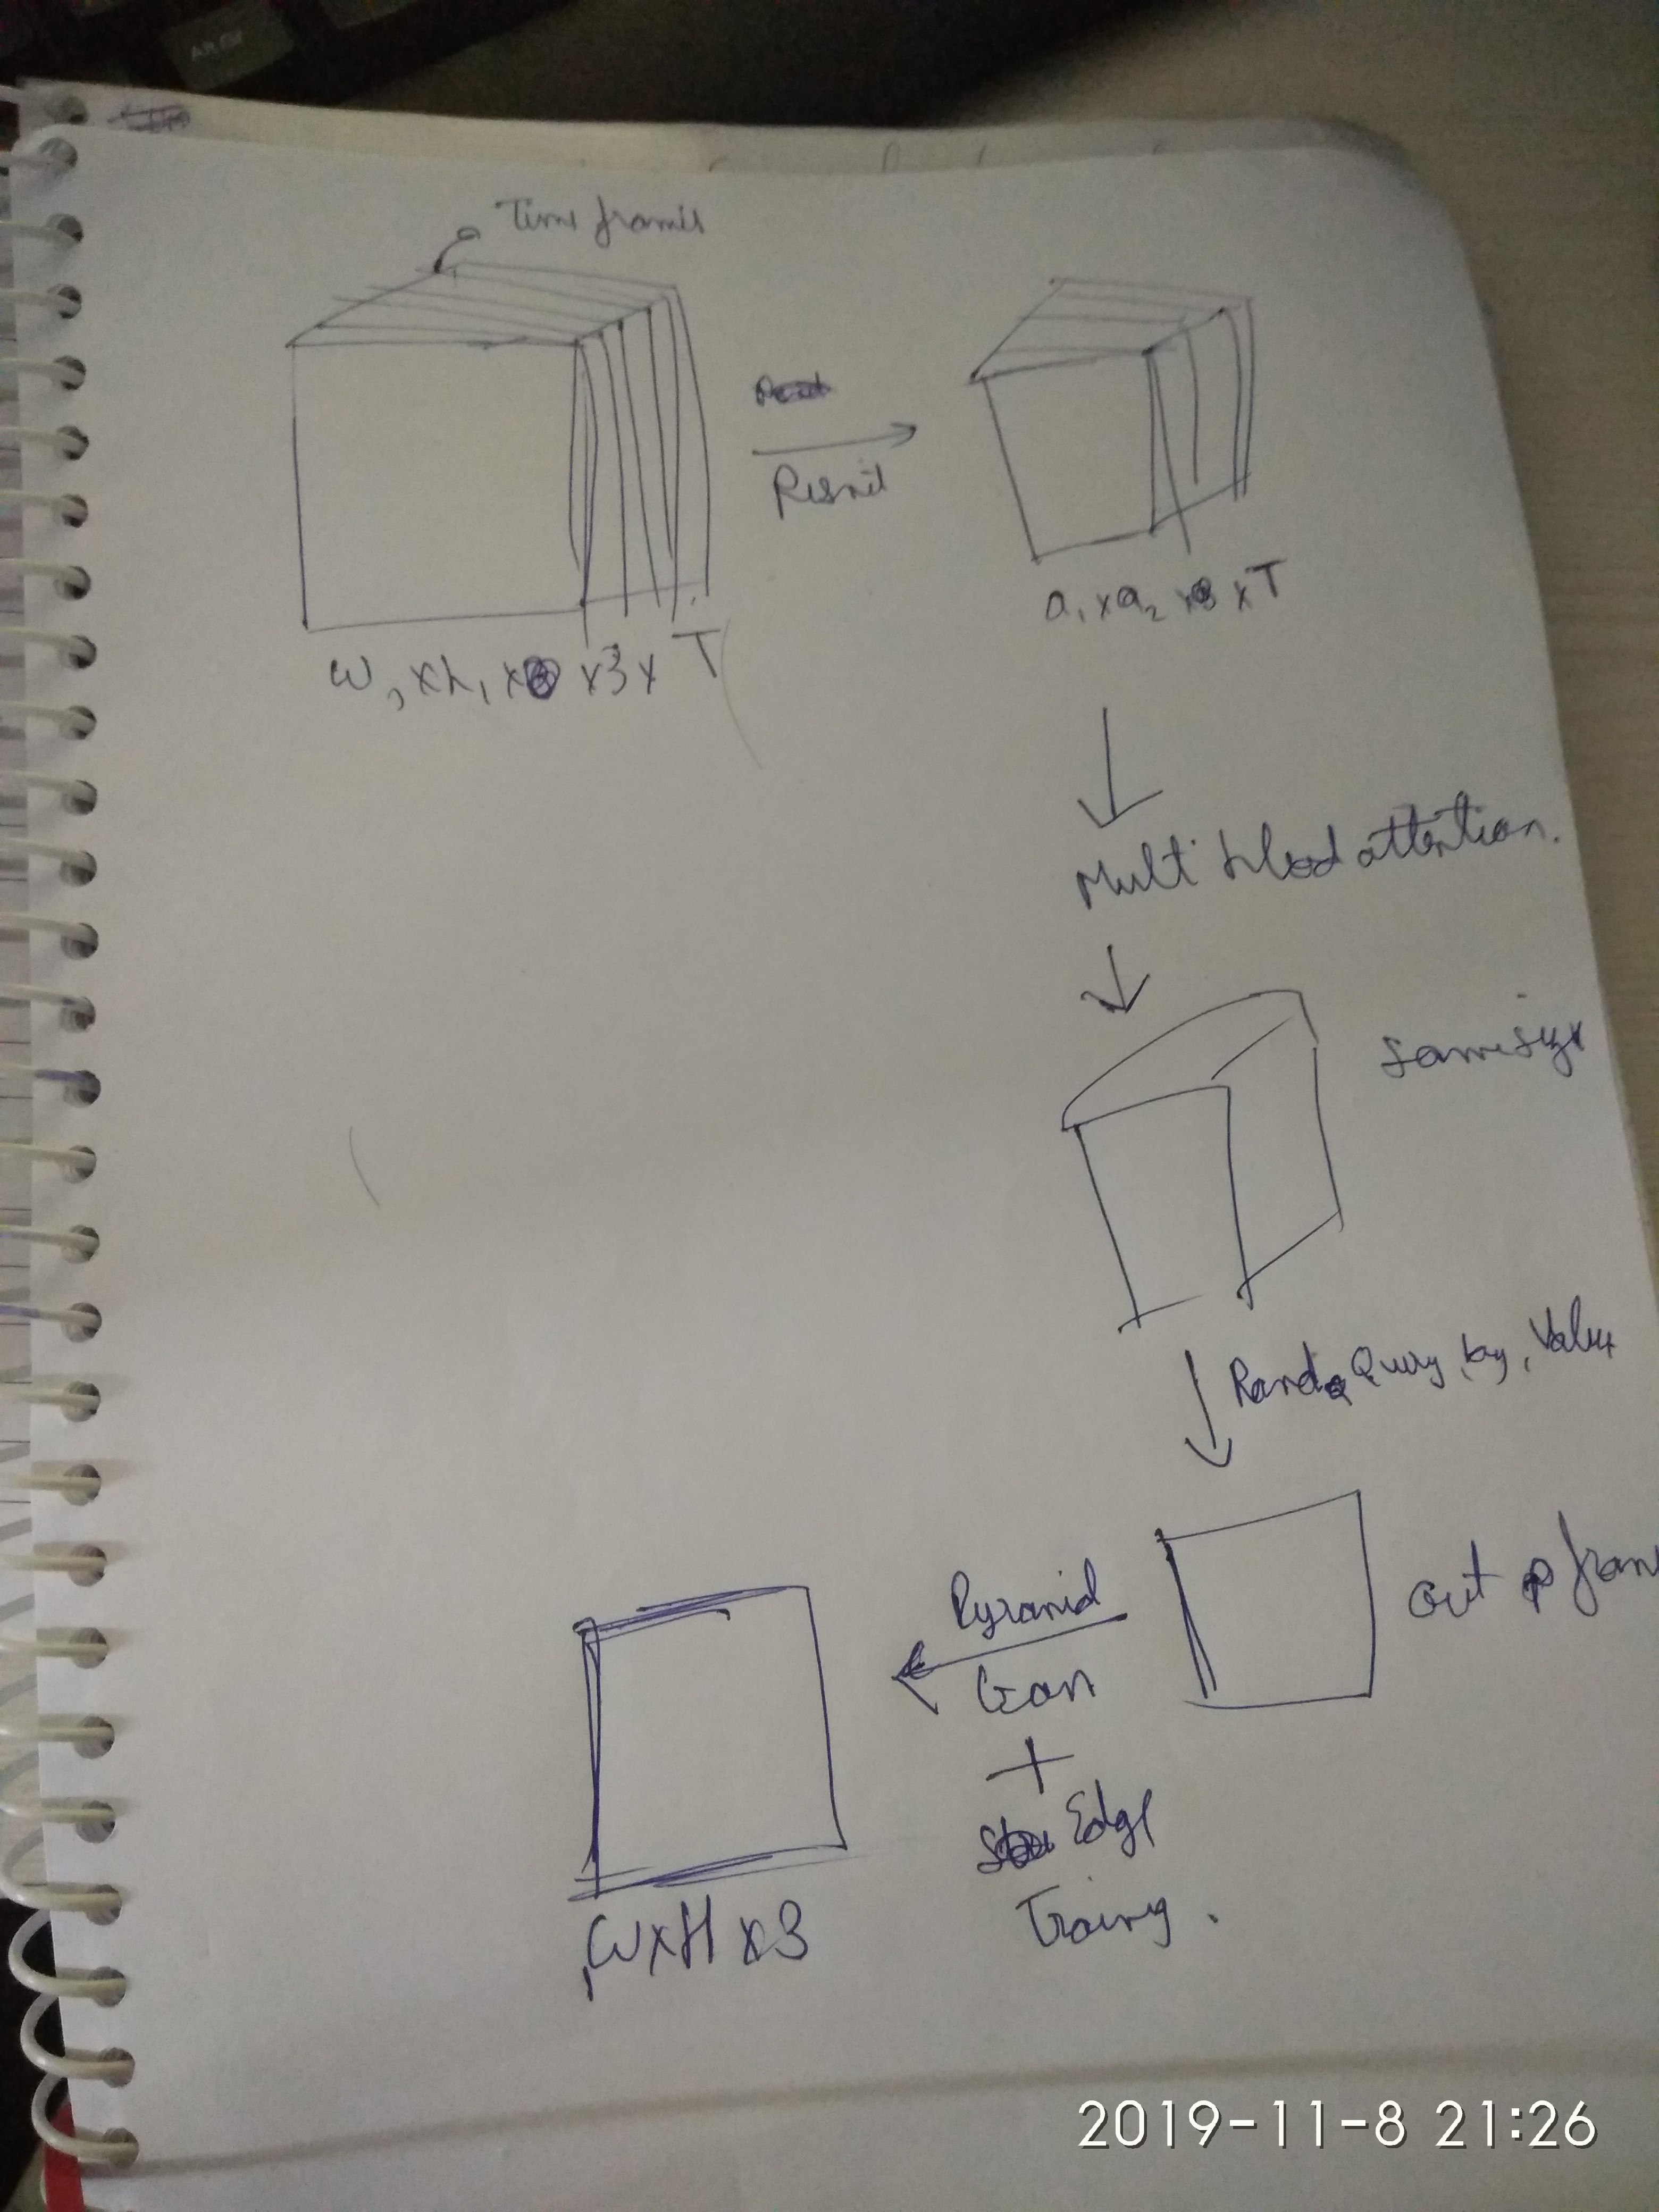 Time frames
Resnet
W, x h, x x 3 x T
a, x a2 x x T
Multi Head attention.
Same size
Rand Query, key, Value
Out fram
Pyramid
Gan
+
Edge
Traing.
W x H x 3
2019-11-8 21:26